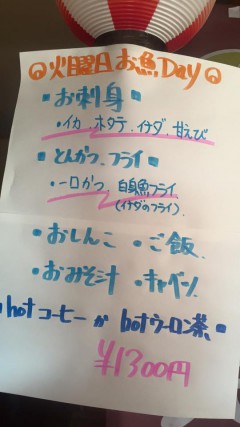 火曜日お魚Day
・お刺身・
・イカ、ホタテ、イナダ、甘えび
・とんかつ、フライ・
・一口かつ 白身魚フライ
(イナダのフライ)
・おしんこ ・ご飯、
・おみそ汁 ・キャベツ、
・hotコーヒーかhotウーロン茶・
¥1300円